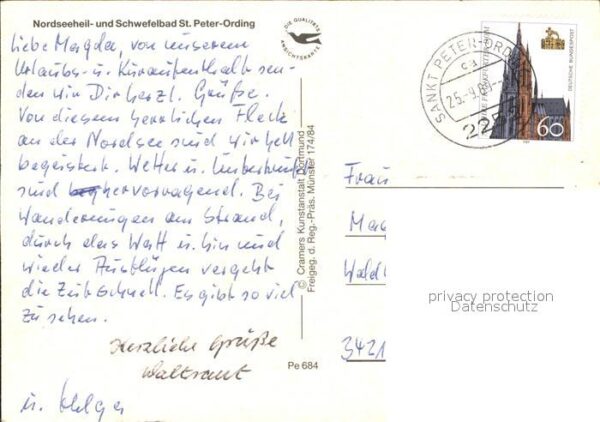 Nordseeheil- und Schwefelbad St. Peter-Ording
DIE QUALITÄTS
ANSICHTSKARTE
Liebe Magda, von unserem
Urlaubs- u. Kuraufenthalt sen-
den wir Dir herzl. Grüße.
Von diesem herrlichen Fleck
an der Nordsee sind wir hell
begeistert. Wetter u. Unterkunft
sind hervorragend. Bei
Wanderungen am Strand,
durch das Watt u. hin und
wieder Ausflügen vergeht
die Zeit schnell. Es gibt so viel
zu sehen.
Herzliche Grüße
Waltraut
u. Helga
© Cramers Kunstanstalt Dortmund
Freigeg. d. Reg.-Präs. Münster 174/84
Pe 684
SANKT PETER-ORDING
ca
25.-9.89
DEUTSCHE BUNDESPOST
60
Frau
Mag
Wald
3421
privacy protection
Datenschutz